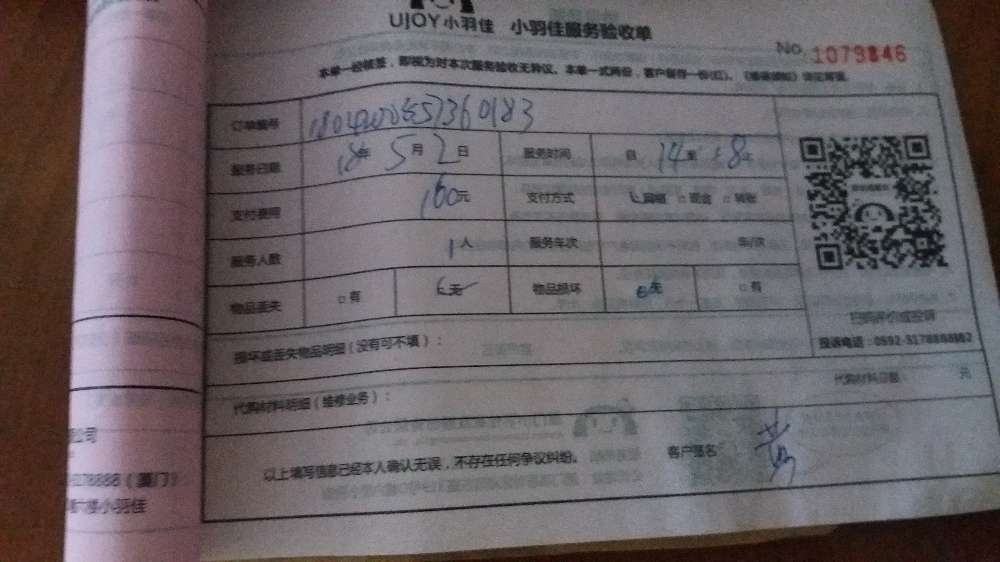 UJOY小羽佳 小羽佳服务验收单
No. 1079846
本单一经核签，即视为对本次服务验收无异议。本单一式两份，客户留存一份(红)。
订单编号
服务日期 18年 5月 2日 服务时间 自 14至 18
支付费用 160元 支付方式 网络 □现金 □转账
服务人数 1人 服务年次 年/次
物品丢失 □有 无 物品损坏 无 □有
扫码评价或投诉
损坏或丢失物品明细（没有可不填）：
代购材料明细（维修业务）： 代购材料总额 元
以上填写信息已经本人确认无误，不存在任何争议纠纷。 客户签名：
公司
3178888（厦门）
六楼小羽佳